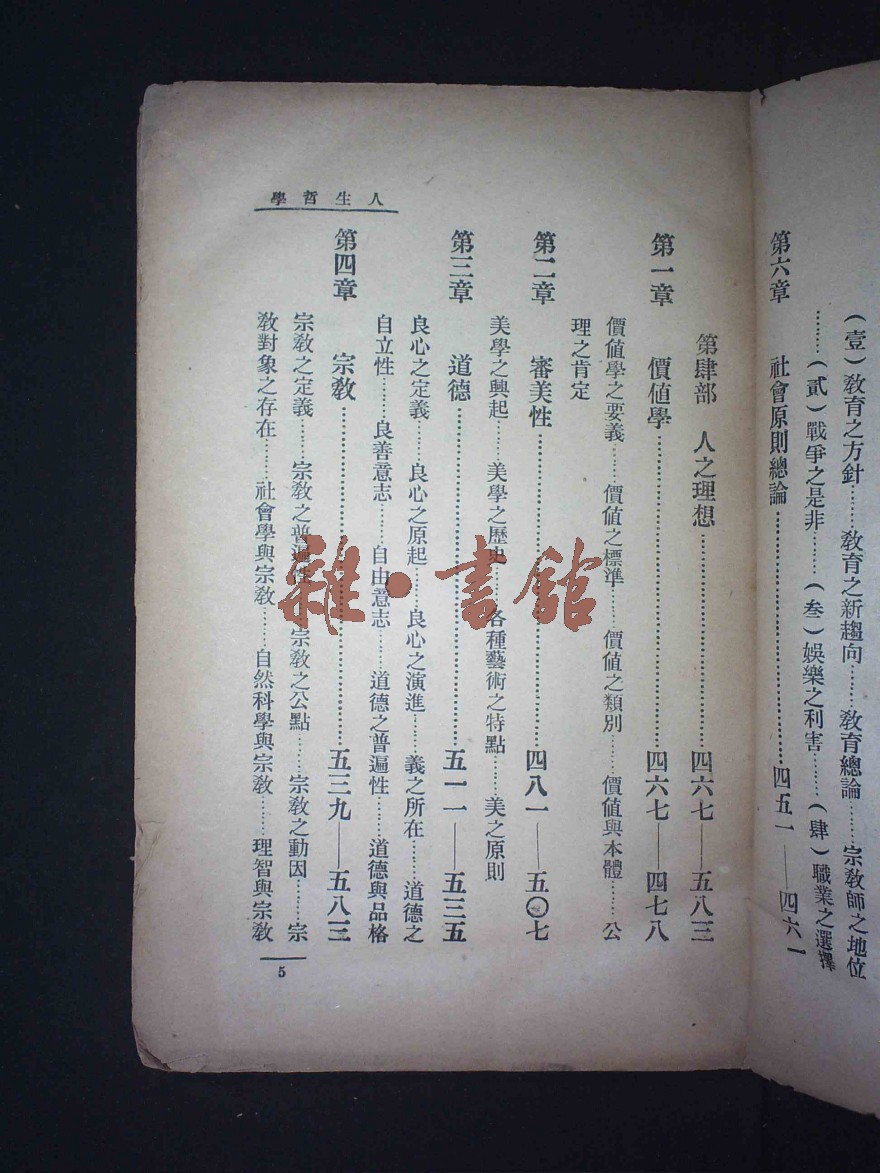 (壹)教育之方針………教育之新趨向………教育總論………宗教師之地位
………(貳)戰爭之是非………(叁)娛樂之利害………(肆)職業之選擇
第六章 社會原則總論………四五一——四六一
人生哲學
第肆部 人之理想………四六七——五八三
第一章 價値學………四六七——四七八
價値學之要義………價値之標準………價値之類別………價値與本體………公
理之肯定
第二章 審美性………四八一——五〇七
美學之興起………美學之歷史………各種藝術之特點………美之原則
第三章 道德………五一一——五三五
良心之定義………良心之原起………良心之演進………義之所在………道德之
自立性………良善意志………自由意志………道德之普遍性………道德與品格
第四章 宗教………五三九——五八三
宗教之定義………宗教之普遍性………宗教之公點………宗教之動因………宗
教對象之存在………社會學與宗教………自然科學與宗教………理智與宗教
5
雜·書館